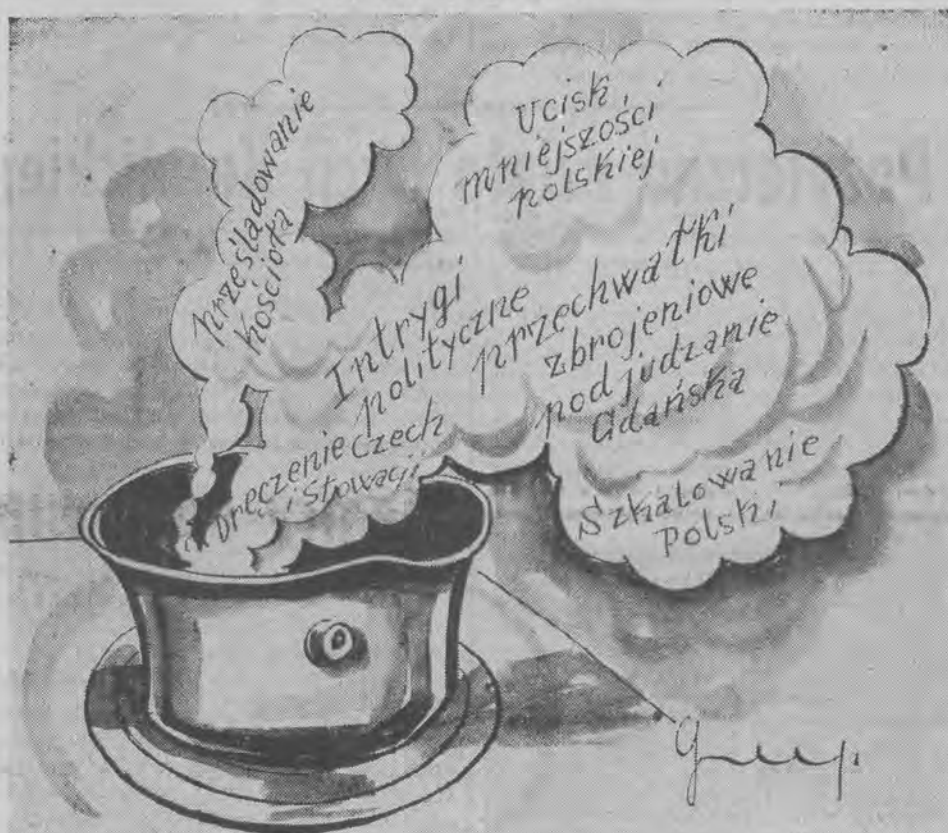 prześladowanie
Kościoła
Ucisk
mniejszości
polskiej
Intrygi
polityczne
przechwałki
zbrojeniowe
podjudzanie
Gdańska
Dręczenie Czech
i Słowacji
Szkalowanie
Polski